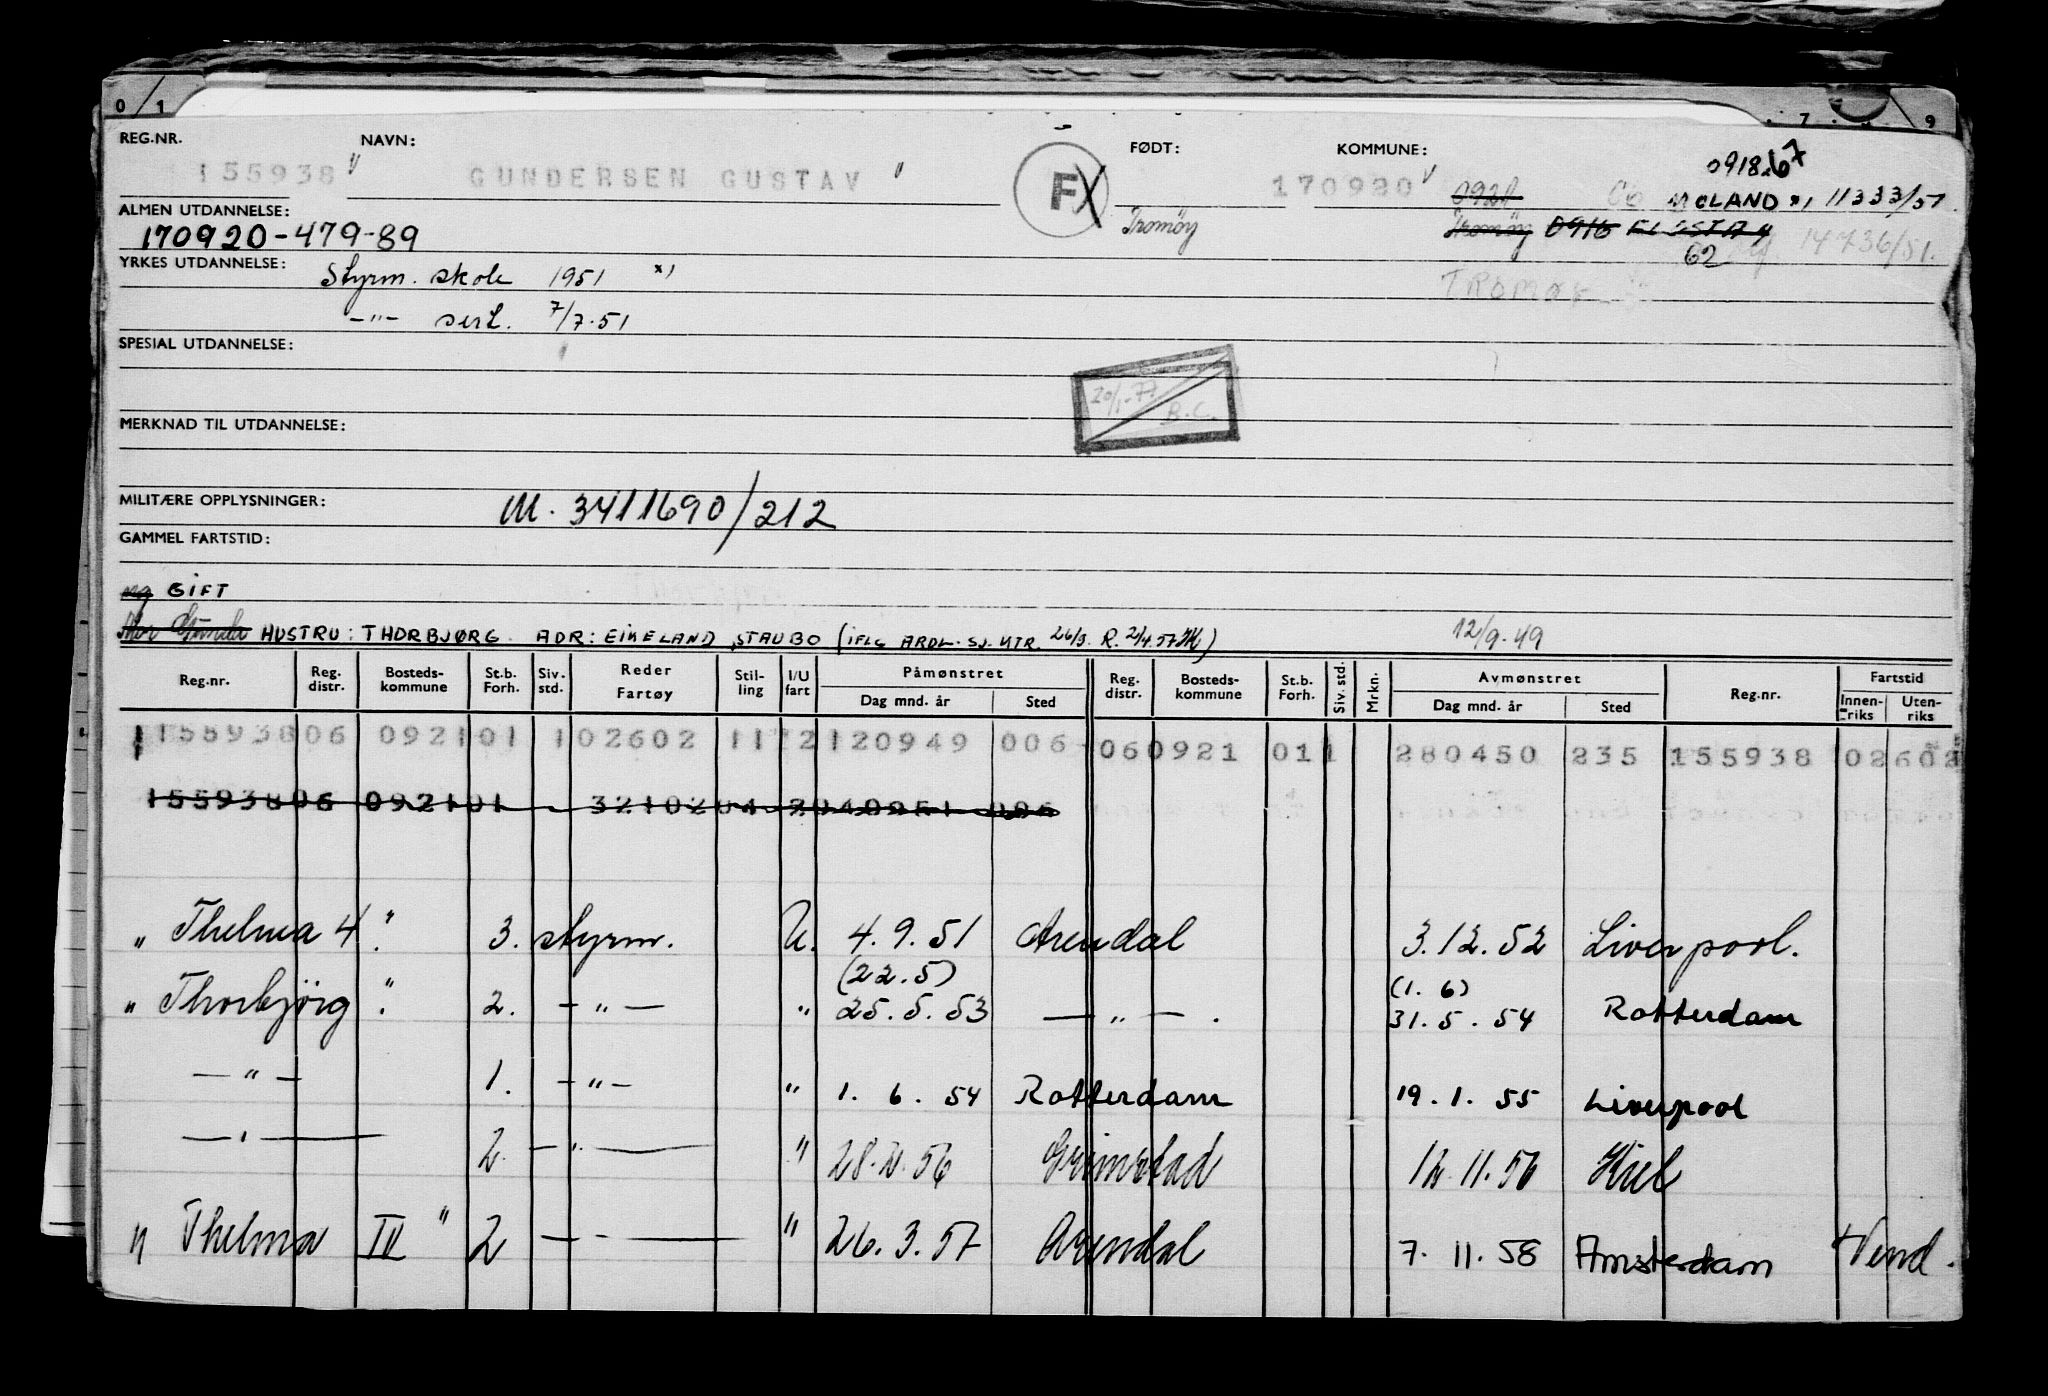 0 / 1 7 9
REG.NR. NAVN: FØDT: KOMMUNE: 0918.67
155938 " GUNDERSEN GUSTAV " F 170920 0921 MOLAND x) 11333/57
ALMEN UTDANNELSE: Tromöy Tromöy 0916 FLOSTA
170920-479-89 62 14736/51.
YRKES UTDANNELSE: Styrm. skole 1951 x) TROMØY
-"- sert. 7/7.51
SPESIAL UTDANNELSE:
20/1-77 B.C.
MERKNAD TIL UTDANNELSE:
MILITÆRE OPPLYSNINGER: M. 3411690/212
GAMMEL FARTSTID:
ug GIFT
Mor Gunda HUSTRU: THORBJØRG. ADR: EIKELAND, STAUBO (IFLG ARDL. SJ. MTR. 26/3. R. 2/4.57 12/9.49
Reg.nr. Reg. distr. Bosteds-kommune St.b. Forh. Siv. std. Reder Fartøy Stil-ling I/U fart Påmønstret Dag mnd. år Sted Reg. distr. Bosteds-kommune St.b. Forh. Siv. std. Mrkn. Avmønstret Dag mnd. år Sted Reg.nr. Fartstid Innen-riks Uten-riks
115593806 092101 102602 11 2 120949 006 060921 011 280450 235 155938 02602
15593806 092101 3210204 2040951 006
" Thelma 4 " 3. styrm. U. 4.9.51 Arendal 3.12.52 Liverpool.
(22.5) (1.6)
" Thorbjörg " 2. -"- " 25.5.53 -"-. 31.5.54 Rotterdam
-"- 1. -"- " 1.6.54 Rotterdam 19.1.55 Liverpool
-"- 2. -"- " 28.2.56 Grimstad 12.11.56 Kiel
" Thelma IV " 2 -"- " 26.3.57 Arendal 7.11.58 Amsterdam +Vend.